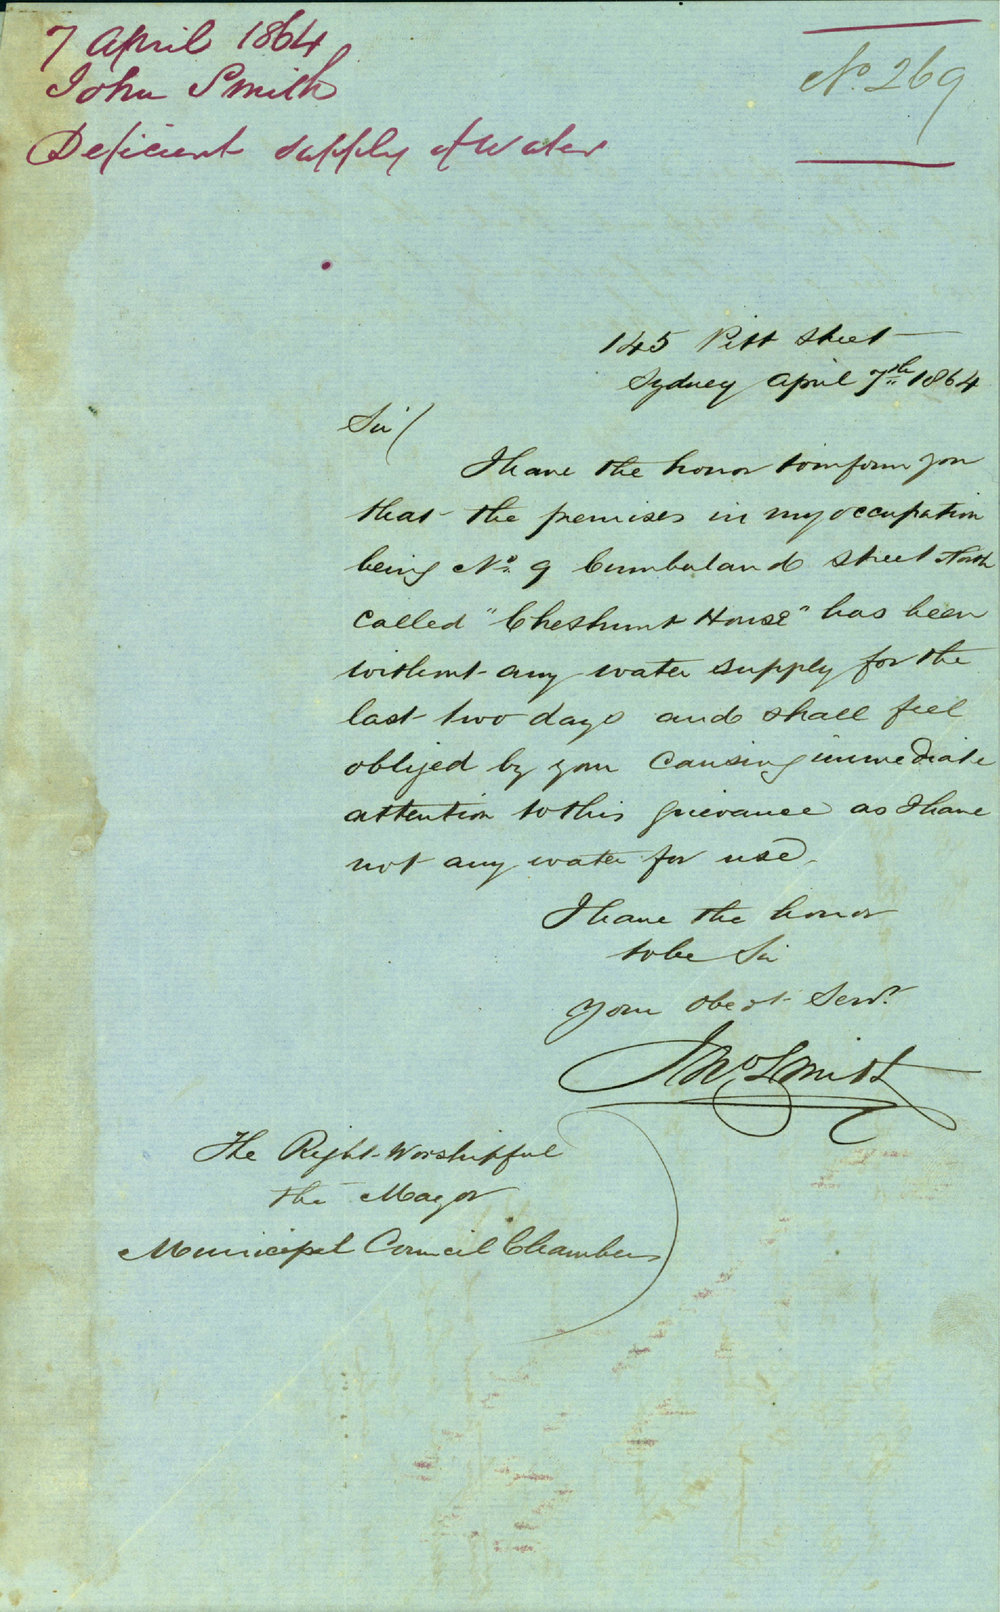 7 April 1864
John Smith
Deficient supply of Water
No. 269
145 Pitt Street
Sydney April 7th 1864
Sir/
I have the honor to inform you
that the premises in my occupation
being No. 9 Cumberland Street North
called "Cheshunt House" has been
without any water supply for the
last two days and shall feel
obliged by your causing immediate
attention to this grievance as I have
not any water for use.
I have the honor
to be Sir
your obedt. Servt.
Jno. Smith
The Right Worshipful
the Mayor
Municipal Council Chambers